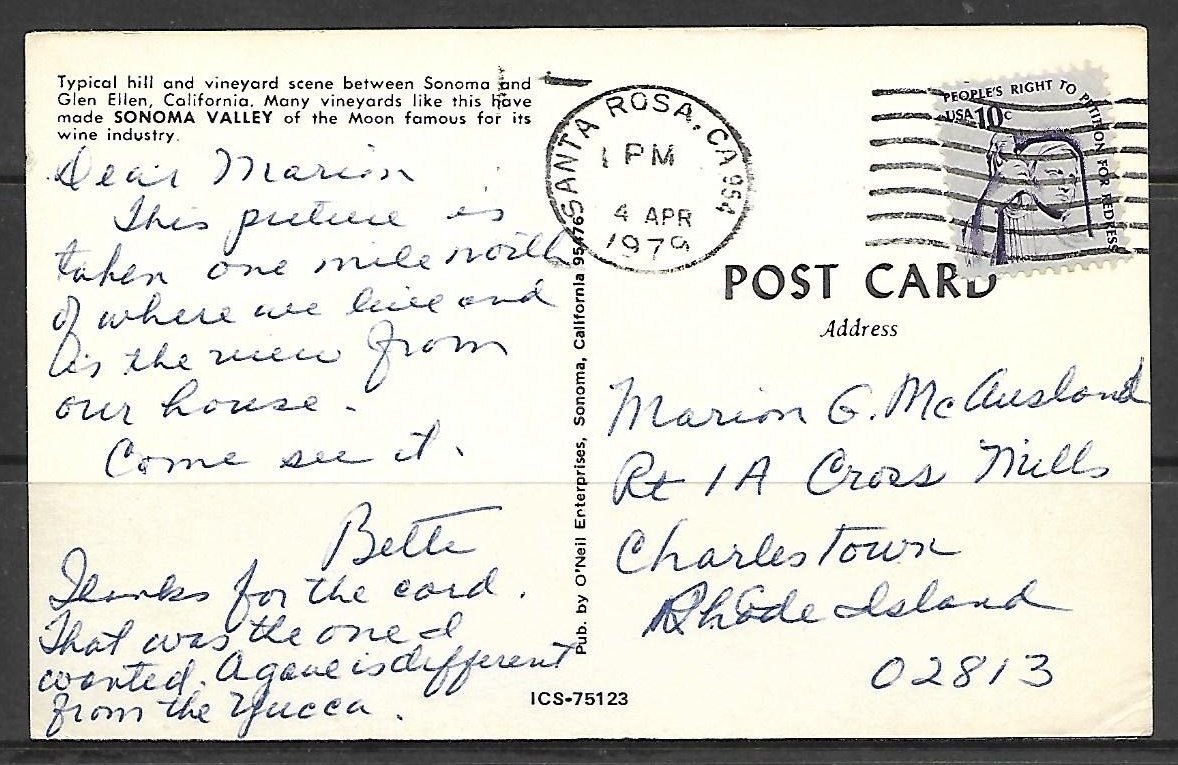 Typical hill and vineyard scene between Sonoma and
Glen Ellen, California. Many vineyards like this have
made SONOMA VALLEY of the Moon famous for its
wine industry.
Dear Marion
This picture is
taken one mile north
of where we live and
is the view from
our house.
Come see it.
Bette
Thanks for the card.
That was the one I
wanted. Agave is different
from the Yucca.
Pub. by O'Neil Enterprises, Sonoma, California 95476
ICS-75123
SANTA ROSA, CA 954
1 PM
4 APR
1979
PEOPLE'S RIGHT TO PETITION FOR REDRESS
USA 10c
POST CARD
Address
Marion G. McAusland
Rt 1A Cross Mills
Charlestown
Rhode Island
02813